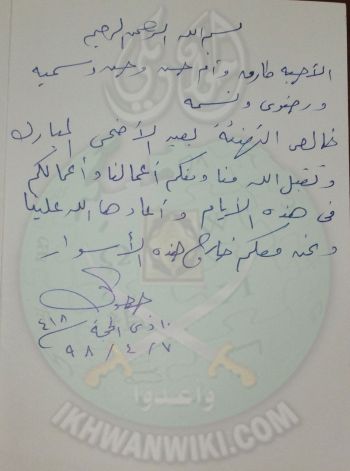 بسم الله الرحمن الرحيم
الأحبة طارق وأم حسن وحسن وسمية
ورضوى ونسمه
خالص التهنئة بعيد الأضحى المبارك
وتقبل الله منا ومنكم أعمالنا وأعمالكم
فى هذه الأيام وأعادها الله علينا
ونحن معكم خارج هذه الأسوار
١٠ ذى الحجة ٤١٨
٩٨ / ٤ / ٧
واعدوا
IKHWANWIKI.COM